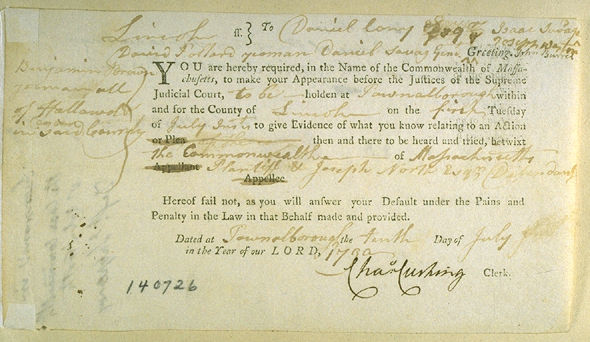 Lincoln ss. } To Daniel Cony Esqr Isaac Savage
David Pollard yeoman Daniel Savage Greeting. John
Benjamin Brown
yeoman all
of Hallowell
in said County
YOU are hereby required, in the Name of the Commonwealth of Massa-
chusetts, to make your Appearance before the Justices of the Supreme
Judicial Court, to be holden at Pownalborough within
and for the County of Lincoln on the first Tuesday
of July Inst. to give Evidence of what you know relating to an Action
or Plea then and there to be heard and tried, betwixt
the Commonwealth of Massachusetts
Appellant & Joseph North Esqr Defendant
Appellee
Hereof fail not, as you will answer your Default under the Pains and
Penalty in the Law in that Behalf made and provided.
Dated at Pownalborough the tenth Day of July
in the Year of our LORD, 1790
Chas Cushing Clerk.
140726